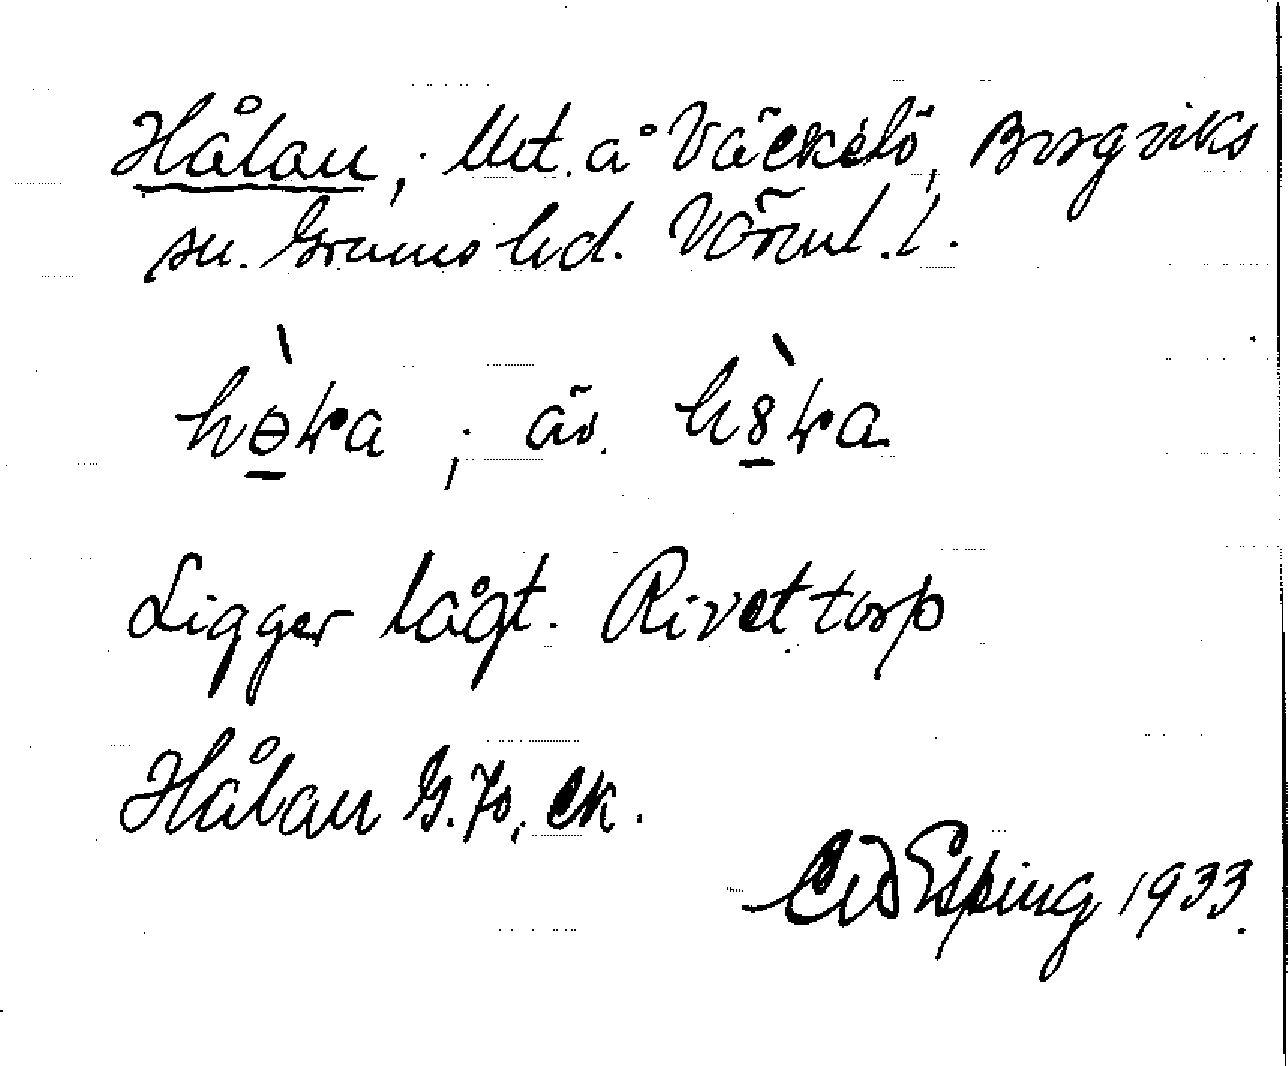 Hålan; Utt. å Väckelö, Borgviks
sn. Grums hd. Värml. l.
hὸ̱ka; äv. hὸ̱ka
Ligger lågt. Rivet torp
Hålan G. Jo, ek.
C W Esping 1933.